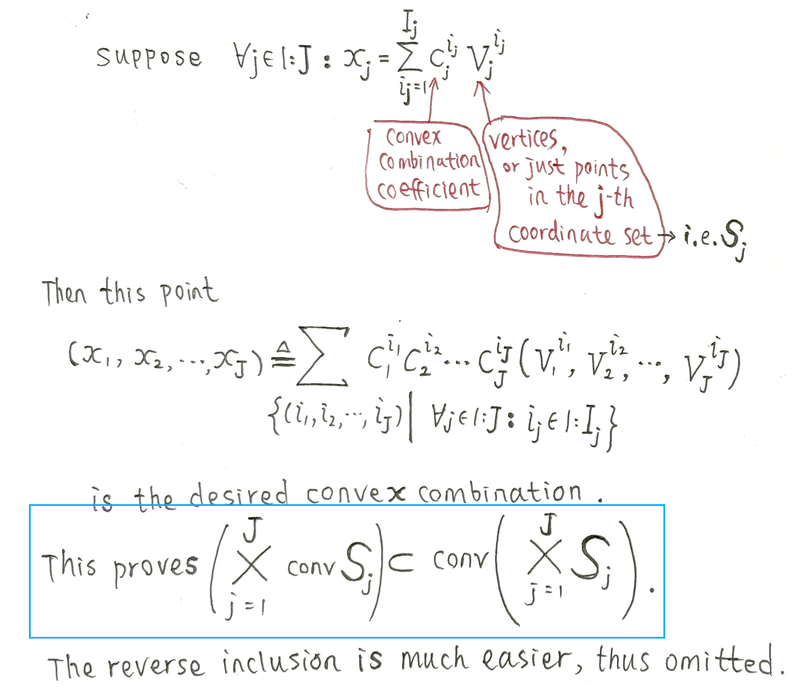 suppose ∀j∈1:J : x_j = Σ_{i_j=1}^{I_j} c_j^{i_j} V_j^{i_j}
convex combination coefficient
vertices, or just points in the j-th coordinate set → i.e. S_j
Then this point
(x_1, x_2, ⋯, x_J) ≜ Σ_{{(i_1, i_2, ⋯, i_J) | ∀j∈1:J : i_j∈1:I_j}} c_1^{i_1} c_2^{i_2} ⋯ c_J^{i_J} (V_1^{i_1}, V_2^{i_2}, ⋯, V_J^{i_J})
is the desired convex combination.
This proves (×_{j=1}^{J} conv S_j) ⊂ conv (×_{j=1}^{J} S_j).
The reverse inclusion is much easier, thus omitted.